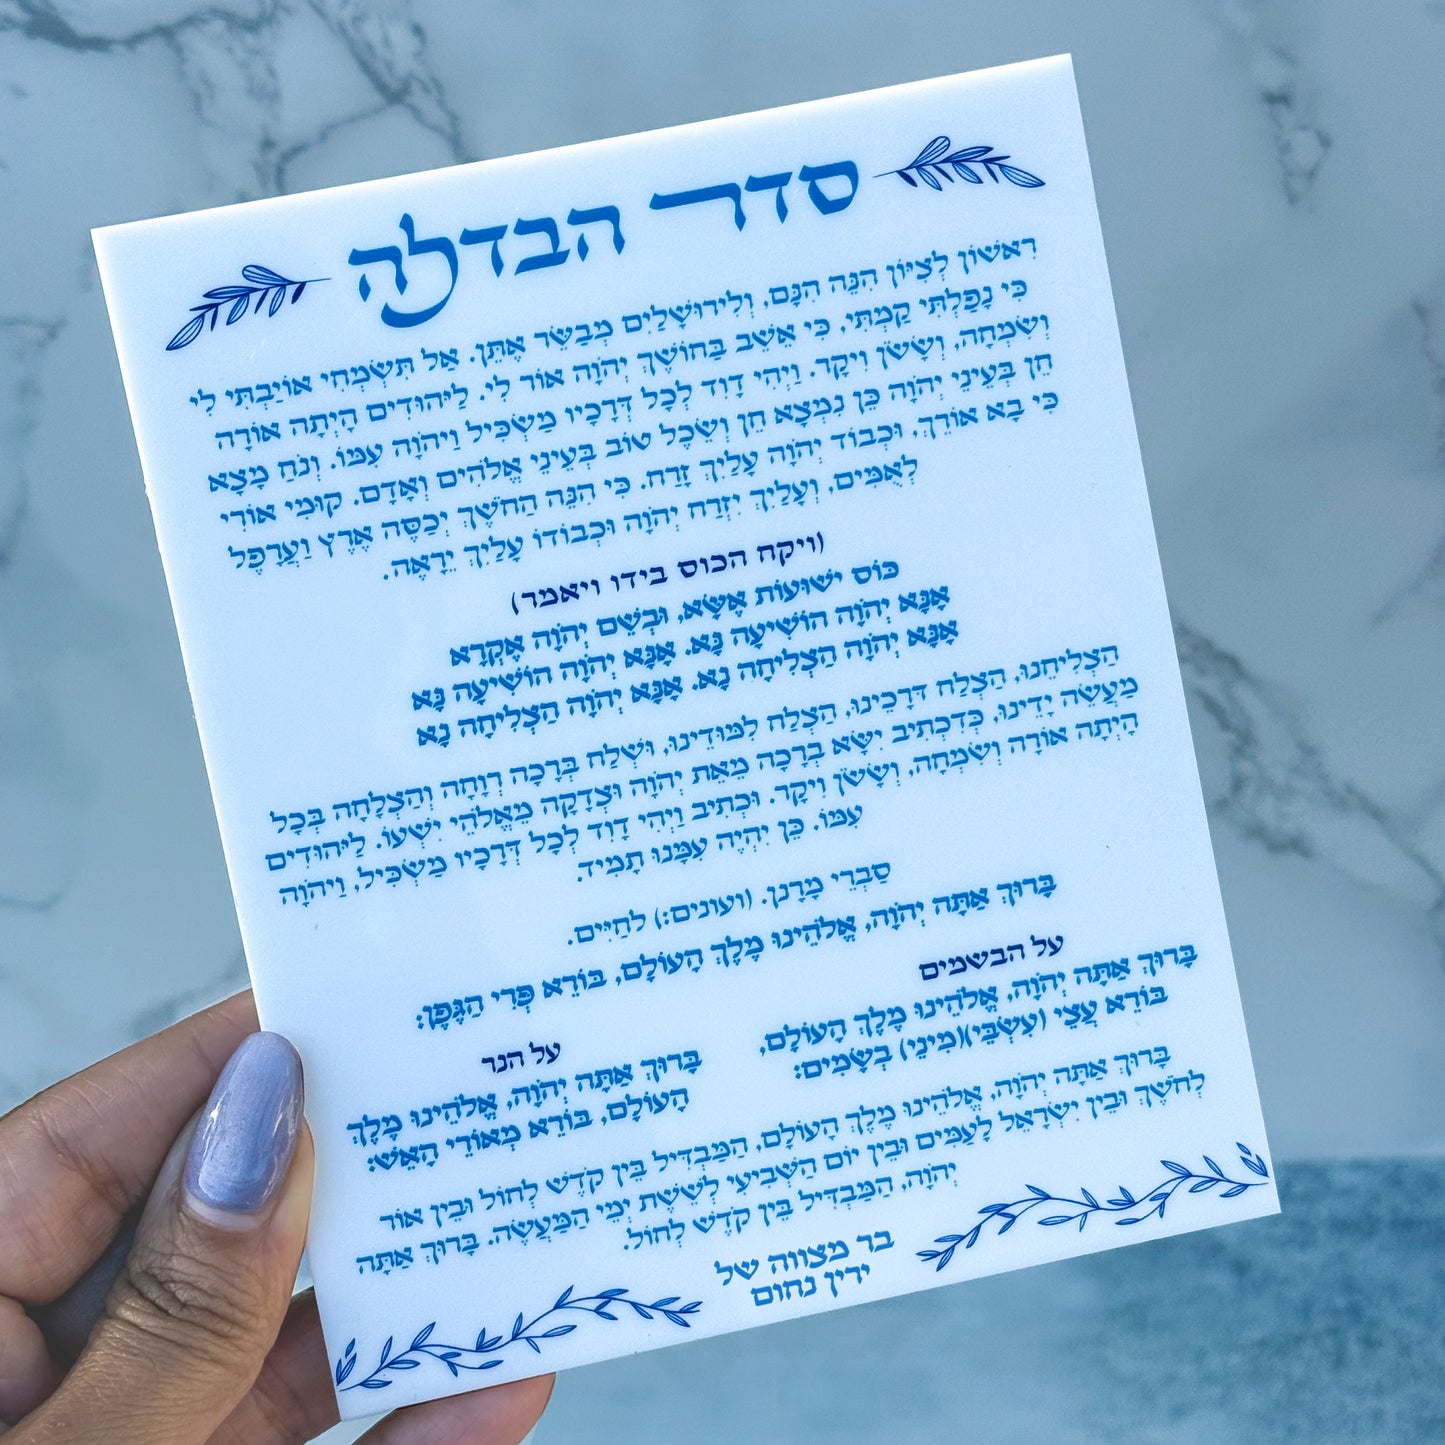 סדר הבדלה
רִאשׁוֹן לְצִיּוֹן הִנֵּה הִנָּם, וְלִירוּשָׁלַיִם מְבַשֵּׂר אֶתֵּן. אַל תִּשְׂמְחִי אוֹיַבְתִּי לִי
כִּי נָפַלְתִּי קַמְתִּי, כִּי אֵשֵׁב בַּחוֹשֶׁךְ יְהֹוָה אוֹר לִי. לַיְּהוּדִים הָיְתָה אוֹרָה
וְשִׂמְחָה, וְשָׂשֹׂן וִיקָר. וַיְהִי דָוִד לְכָל דְּרָכָיו מַשְׂכִּיל וַיהֹוָה עִמּוֹ. וְנֹחַ מָצָא
חֵן בְּעֵינֵי יְהֹוָה כֵּן נִמְצָא חֵן וְשֵׂכֶל טוֹב בְּעֵינֵי אֱלֹהִים וְאָדָם. קוּמִי אוֹרִי
כִּי בָא אוֹרֵךְ, וּכְבוֹד יְהֹוָה עָלַיִךְ זָרַח. כִּי הִנֵּה הַחֹשֶׁךְ יְכַסֶּה אֶרֶץ וַעֲרָפֶל
לְאֻמִּים, וְעָלַיִךְ יִזְרַח יְהֹוָה וּכְבוֹדוֹ עָלַיִךְ יֵרָאֶה.
(ויקח הכוס בידו ויאמר)
כּוֹס יְשׁוּעוֹת אֶשָּׂא, וּבְשֵׁם יְהֹוָה אֶקְרָא
אָנָּא יְהֹוָה הוֹשִׁיעָה נָּא. אָנָּא יְהֹוָה הוֹשִׁיעָה נָּא
אָנָּא יְהֹוָה הַצְלִיחָה נָא. אָנָּא יְהֹוָה הַצְלִיחָה נָא
הַצְלִיחֵנוּ, הַצְלַח דְּרָכֵינוּ, הַצְלַח לִמּוּדֵינוּ, וּשְׁלַח בְּרָכָה רְוָחָה וְהַצְלָחָה בְּכָל
מַעֲשֵׂה יָדֵינוּ, כְּדִכְתִיב יִשָּׂא בְרָכָה מֵאֵת יְהֹוָה וּצְדָקָה מֵאֱלֹהֵי יִשְׁעוֹ. לַיְּהוּדִים
הָיְתָה אוֹרָה וְשִׂמְחָה, וְשָׂשֹׂן וִיקָר. וּכְתִיב וַיְהִי דָוִד לְכָל דְּרָכָיו מַשְׂכִּיל, וַיהֹוָה
עִמּוֹ. כֵּן יִהְיֶה עִמָּנוּ תָמִיד.
סַבְרִי מָרָנָן. (ועונים:) לְחַיִּים.
בָּרוּךְ אַתָּה יְהֹוָה, אֱלֹהֵינוּ מֶלֶךְ הָעוֹלָם, בּוֹרֵא פְּרִי הַגֶּפֶן:
על הבשמים
בָּרוּךְ אַתָּה יְהֹוָה, אֱלֹהֵינוּ מֶלֶךְ הָעוֹלָם,
בּוֹרֵא עֲצֵי (עִשְׂבֵּי)(מִינֵי) בְשָׂמִים:
על הנר
בָּרוּךְ אַתָּה יְהֹוָה, אֱלֹהֵינוּ מֶלֶךְ
הָעוֹלָם, בּוֹרֵא מְאוֹרֵי הָאֵשׁ:
בָּרוּךְ אַתָּה יְהֹוָה, אֱלֹהֵינוּ מֶלֶךְ הָעוֹלָם, הַמַּבְדִּיל בֵּין קֹדֶשׁ לְחוֹל וּבֵין אוֹר
לְחֹשֶׁךְ וּבֵין יִשְׂרָאֵל לָעַמִּים וּבֵין יוֹם הַשְּׁבִיעִי לְשֵׁשֶׁת יְמֵי הַמַּעֲשֶׂה. בָּרוּךְ אַתָּה
יְהֹוָה, הַמַּבְדִּיל בֵּין קֹדֶשׁ לְחוֹל.
בר מצווה של
ירין נחום